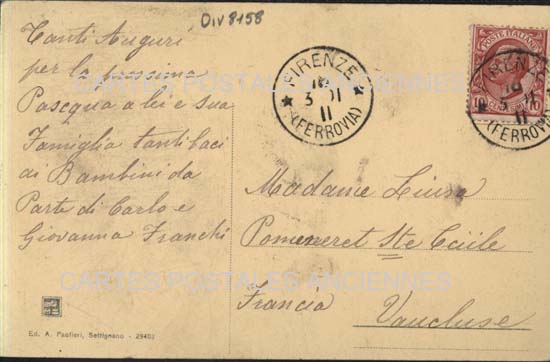 Div 8158
Tanti Auguri
per la prossima
Pasqua a lei e sua
Famiglia tanti baci
ai Bambini da
Parte di Carlo e
Giovanna Franchi
FIRENZE
(FERROVIA)
POSTE ITALIANE
FIRENZE
(FERROVIA)
Madame Luisa
Pomeneret Ste Cécile
Francia
Vaucluse
CARTES POSTALES ANCIENNES
CARTES POSTALES ANCIENNES
Ed. A. Paolieri, Settignano - 29402